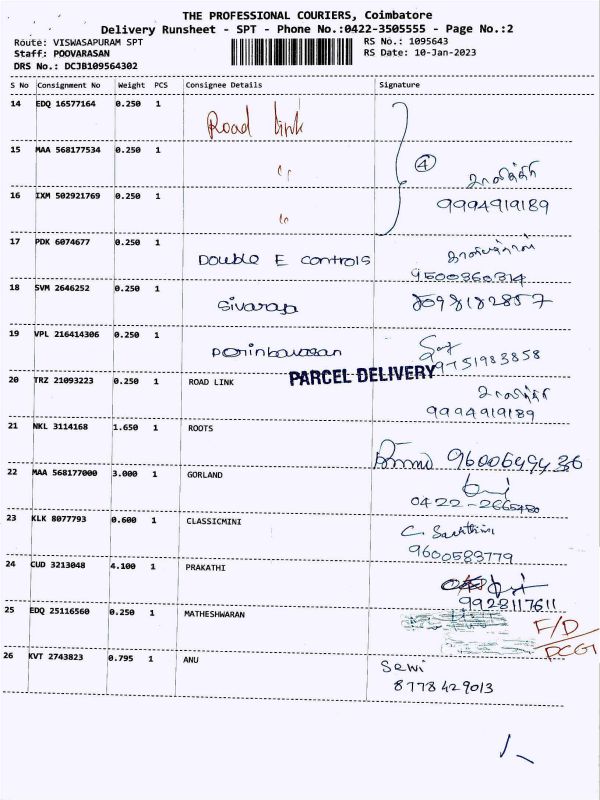 THE PROFESSIONAL COURIERS, Coimbatore
Delivery Runsheet - SPT - Phone No.:0422-3505555 - Page No.:2
Route: VISWASAPURAM SPT
RS No.: 1095643
Staff: POOVARASAN
RS Date: 10-Jan-2023
DRS No.: DCJB109564302
S No Consignment No Weight PCS Consignee Details Signature
14 EDQ 16577164 0.250 1 Road link
15 MAA 568177534 0.250 1 " 4
16 IXM 502921769 0.250 1 " 9994919189
17 PDK 6074677 0.250 1 Double E controls
9500360314
18 SVM 2646252 0.250 1 Sivaraja 8098182857
19 VPL 216414306 0.250 1 9751983858
PARCEL DELIVERY
20 TRZ 21093223 0.250 1 ROAD LINK
9994919189
21 NKL 3114168 1.650 1 ROOTS
22 MAA 568177000 3.000 1 GORLAND
0422-2665480
23 KLK 8077793 0.600 1 CLASSICMINI
9600583779
24 CUD 3213048 4.100 1 PRAKATHI
9928117611
25 EDQ 25116560 0.250 1 MATHESHWARAN F/D
26 KVT 2743823 0.795 1 ANU Selvi
8778429013